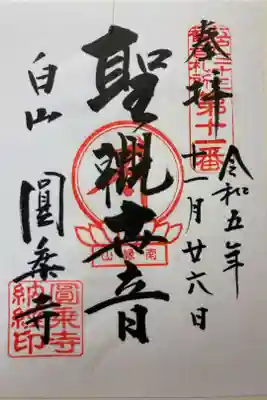 奉拝
第十一番
令和五年
十一月廿六日
聖觀世音
南縁山
白山
圓乗寺
圓乗寺
納経印